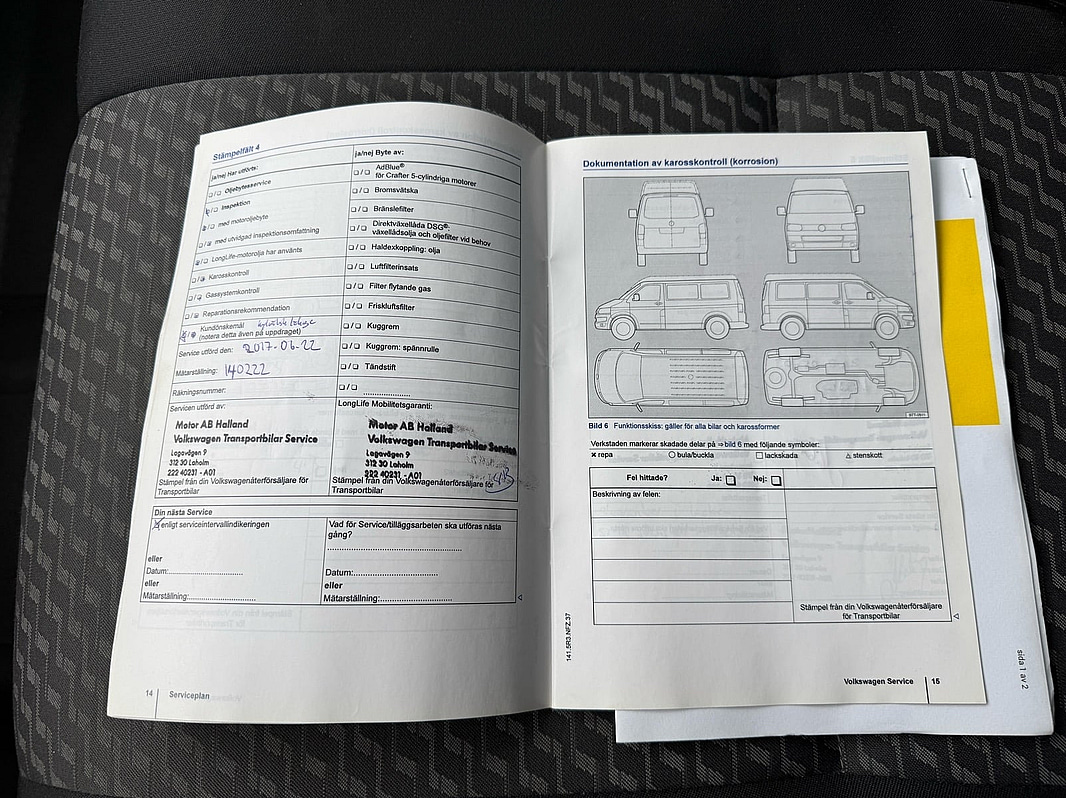 Stämpelfält 4
ja/nej Har utförts:
❏ / ❏ Oljebytesservice
❏ / ❏ Inspektion
❏ / ❏ med motoroljebyte
❏ / ❏ med utvidgad inspektionsomfattning
❏ / ❏ LongLife-motorolja har använts
❏ / ❏ Karosskontroll
❏ / ❏ Gassystemkontroll
❏ / ❏ Reparationsrekommendation
❏ / ❏ Kundönskemål
(notera detta även på uppdraget)
Service utförd den: 2017-06-22
Mätarställning: 140222
Räkningsnummer:
Servicen utförd av:
Motor AB Halland
Volkswagen Transportbilar Service
Lagavägen 9
312 30 Laholm
222 40231 - A01
Stämpel från din Volkswagenåterförsäljare för
Transportbilar
ja/nej Byte av:
❏ / ❏ AdBlue®
för Crafter 5-cylindriga motorer
❏ / ❏ Bromsvätska
❏ / ❏ Bränslefilter
❏ / ❏ Direktväxellåda DSG®:
växellådsolja och oljefilter vid behov
❏ / ❏ Haldexkoppling: olja
❏ / ❏ Luftfilterinsats
❏ / ❏ Filter flytande gas
❏ / ❏ Friskluftsfilter
❏ / ❏ Kuggrem
❏ / ❏ Kuggrem: spännrulle
❏ / ❏ Tändstift
❏ / ❏ ....................
LongLife Mobilitetsgaranti:
Motor AB Halland
Volkswagen Transportbilar Service
Lagavägen 9
312 30 Laholm
222 40231 - A01
Stämpel från din Volkswagenåterförsäljare för
Transportbilar
Din nästa Service
enligt serviceintervallindikeringen
eller
Datum:..............................
eller
Mätarställning:.............................
Vad för Service/tilläggsarbeten ska utföras nästa
gång?
..........................................................
Datum:....................................
eller
Mätarställning:..............................
14 Serviceplan
Dokumentation av karosskontroll (korrosion)
Bild 6 Funktionsskiss: gäller för alla bilar och karossformer
Verkstaden markerar skadade delar på ⇒ bild 6 med följande symboler:
✗ repa ○ bula/buckla □ lackskada △ stenskott
Fel hittade? Ja: ❏ Nej: ❏
Beskrivning av felen:
Stämpel från din Volkswagenåterförsäljare
för Transportbilar
141.5R3.NFZ.37
Volkswagen Service 15
sida 1 av 2